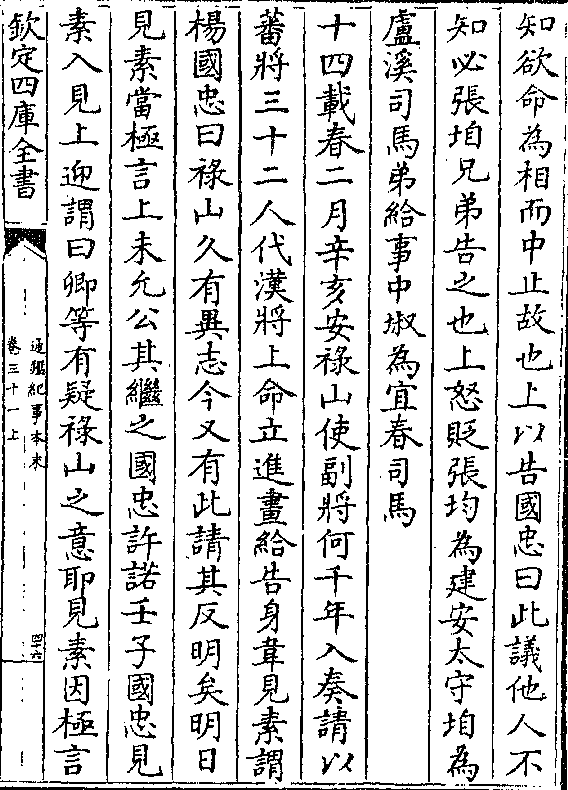 知欲命為相而中止故也上以告國忠曰此議他人不
知必張垍兄弟告之也上怒貶張均為建安太守垍為
盧溪司馬弟給事中埱為宜春司馬
十四載春二月辛亥安祿山使副將何千年入奏請以
蕃將三十二人代漢將上命立進畫給告身韋見素謂
楊國忠曰祿山久有異志今又有此請其反明矣明日
見素當極言上未允公其繼之國忠許諾壬子國忠見
素入見上迎謂曰卿等有疑祿山之意耶見素因極言
欽定四庫全書
通鑑紀事本末
卷三十一上
四十六